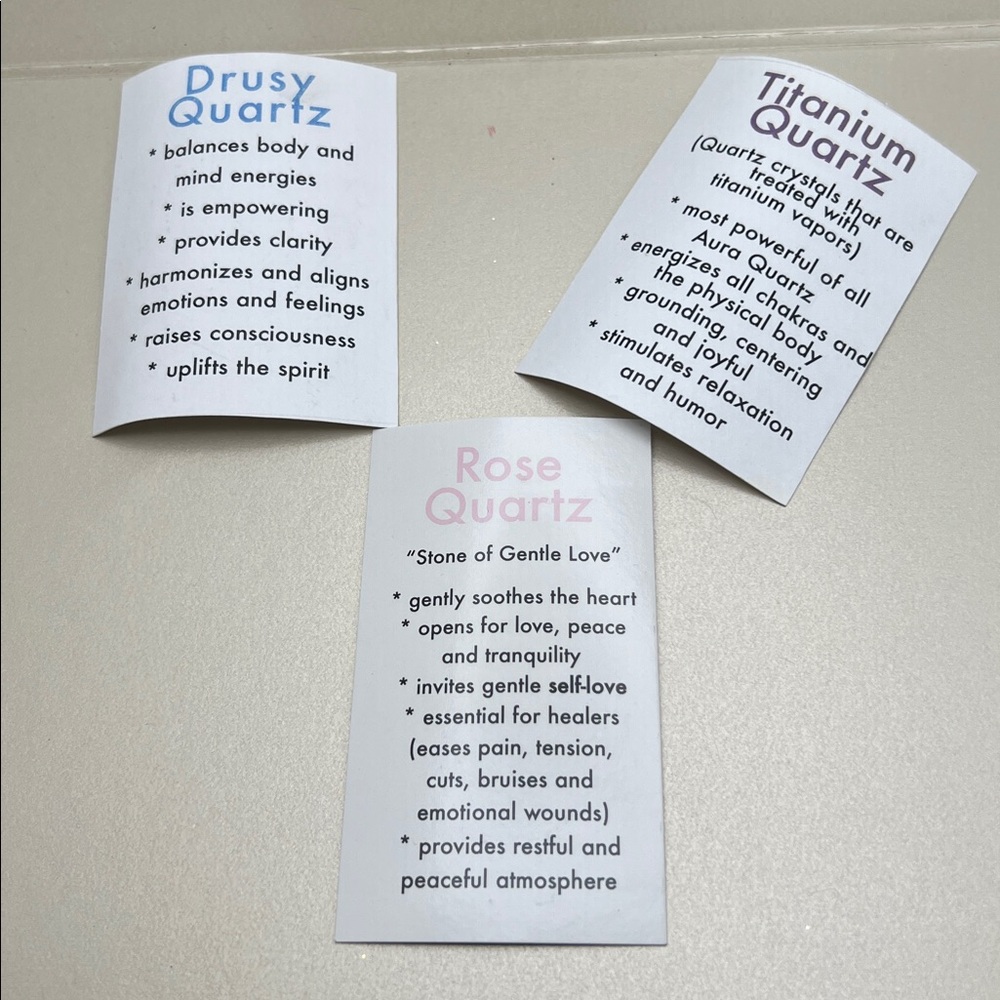 Drusy
Quartz
* balances body and
mind energies
* is empowering
* provides clarity
* harmonizes and aligns
emotions and feelings
* raises consciousness
* uplifts the spirit
Titanium
Quartz
(Quartz crystals that are
treated with
titanium vapors)
* most powerful of all
Aura Quartz
* energizes all chakras and
the physical body
* grounding, centering
and joyful
* stimulates relaxation
and humor
Rose
Quartz
"Stone of Gentle Love"
* gently soothes the heart
* opens for love, peace
and tranquility
* invites gentle self-love
* essential for healers
(eases pain, tension,
cuts, bruises and
emotional wounds)
* provides restful and
peaceful atmosphere